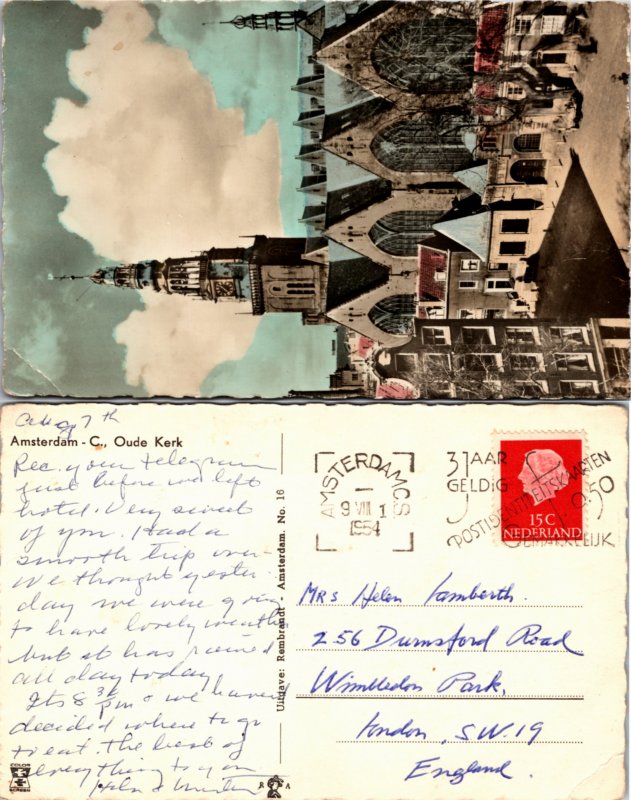 Aug 7th
Amsterdam - C., Oude Kerk
Rec. your telegram
just before we left
hotel. Very sweet
of you. Had a
smooth trip over
We thought yester-
day we were going
to have lovely weather
but it has rained
all day today
Its 8 30 pm & we haven't
decided where to go
to eat. the best of
everything to you
Uitgave: Rembrandt - Amsterdam. No. 16
AMSTERDAM C.S.
9 VIII 1
1954
3 JAAR
GELDIG
POSTIDENTITEITSKAARTEN
GEMAKKELIJK
15 C
NEDERLAND
Mrs Helen Lamberth.
256 Durnsford Road
Wimbledon Park,
London, S.W. 19
England.
COLOR
SCREEN
R A